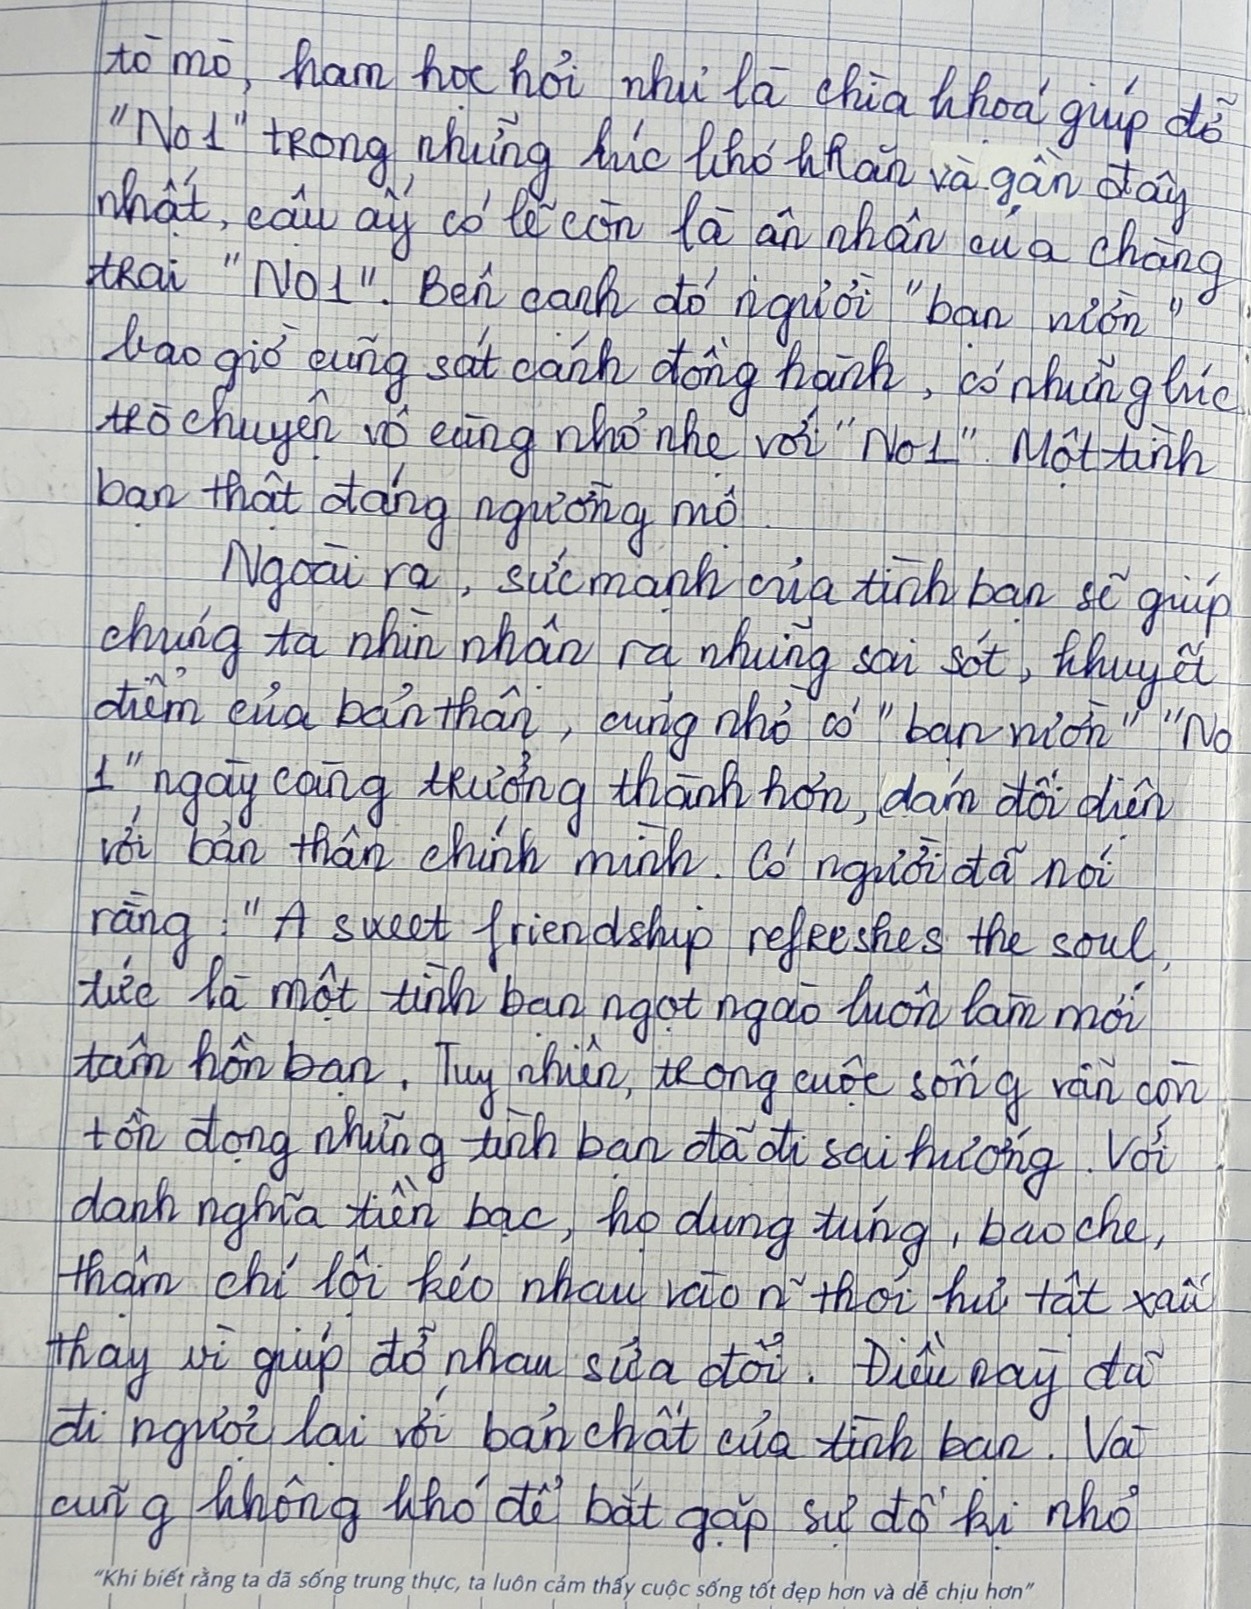 tò mò, ham học hỏi như là chìa khoá giúp đỡ
"No1" trong những lúc khó khăn và gần đây
nhất, cậu ấy có lẽ còn là ân nhân của chàng
trai "No1". Bên cạnh đó người "bạn mườn"
bao giờ cũng sát cánh đồng hành, có những lúc
trò chuyện vô cùng nhỏ nhẹ với "No1". Một tình
bạn thật đáng ngưỡng mộ.
Ngoài ra, sức mạnh của tình bạn sẽ giúp
chúng ta nhìn nhận ra những sai sót, khuyết
điểm của bản thân, cũng nhờ có "bạn mườn" "No
1" ngày càng trưởng thành hơn, dám đối diện
với bản thân chính mình. Có người đã nói
rằng: "A sweet friendship refreshes the soul,
tức là một tình bạn ngọt ngào luôn làm mới
tâm hồn bạn. Tuy nhiên, trong cuộc sống vẫn còn
tồn đọng những tình bạn đã đi sai hướng. Với
danh nghĩa tiền bạc, họ dung túng, bao che,
thậm chí lôi kéo nhau vào n~ thói hư tật xấu
thay vì giúp đỡ nhau sửa đổi. Điều này đã
đi ngược lại với bản chất của tình bạn. Và
cũng không khó để bắt gặp sự đố kị nhỏ
"Khi biết rằng ta đã sống trung thực, ta luôn cảm thấy cuộc sống tốt đẹp hơn và dễ chịu hơn"